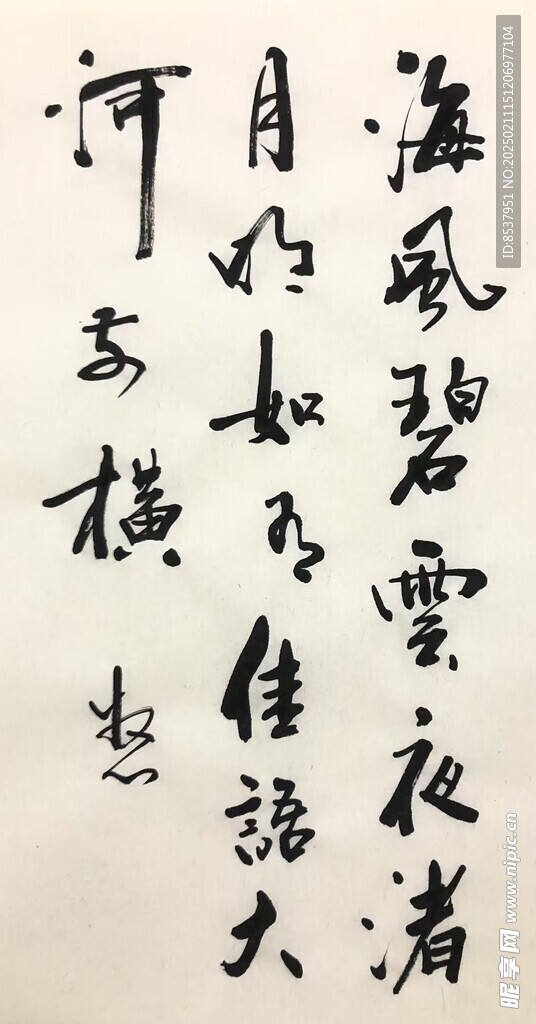 海風碧雲夜渚
月明如有佳語大
河前橫
ID:8537951 NO:20250211151206977104
昵享网 www.nipic.cn